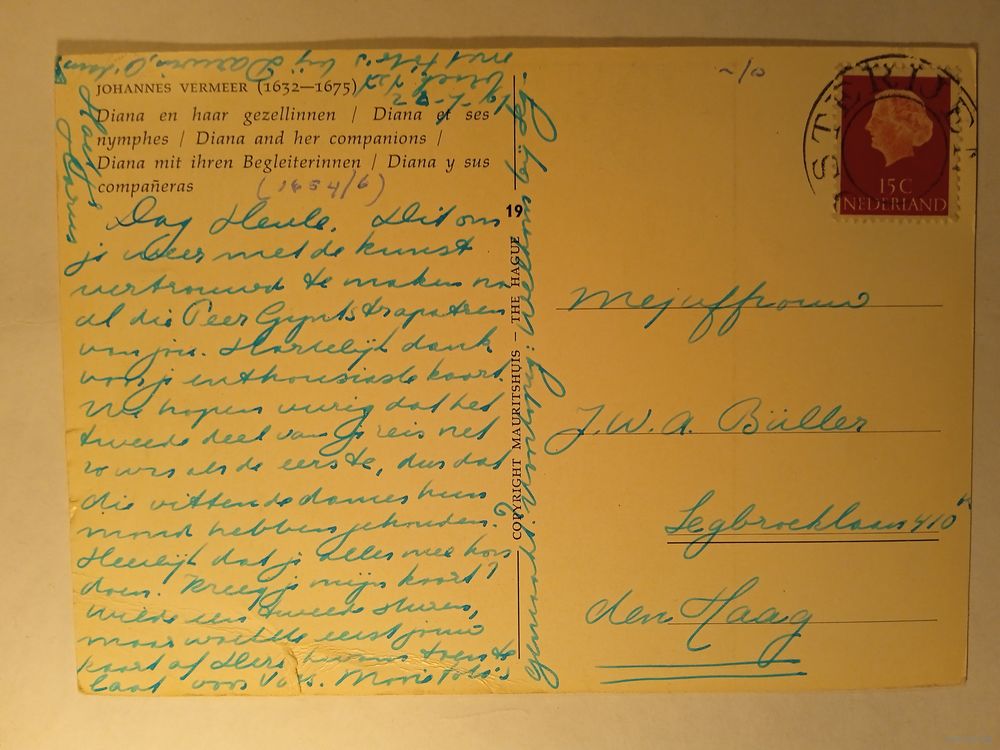 JOHANNES VERMEER (1632—1675)
Diana en haar gezellinnen / Diana et ses
nymphes / Diana and her companions /
Diana mit ihren Begleiterinnen / Diana y sus
compañeras
(1654/6)
Dag Heule. Dit om
je weer met de kunst
vertrouwd te maken na
al die Peer Gynt strapatzen
van jou. Hartelijk dank
voor je enthousiaste kaart.
We hopen vurig dat het
tweede deel van je reis net
zo was als de eerste, dus dat
die vittende dames hun
mond hebben gehouden.
Heerlijk dat je alles mee kon
doen. Kreeg je mijn kaart?
Wilde een tweede sturen,
maar wachtte eerst jouw
kaart af
laat voor Mooie foto's
gemaakt? Voorlopig: Welkom bij
met foto's bij
19
COPYRIGHT MAURITSHUIS — THE HAGUE
STERIJ
15 C
NEDERLAND
Mejuffrouw
J.W.A. Büller
Segbroeklaan 410
den Haag